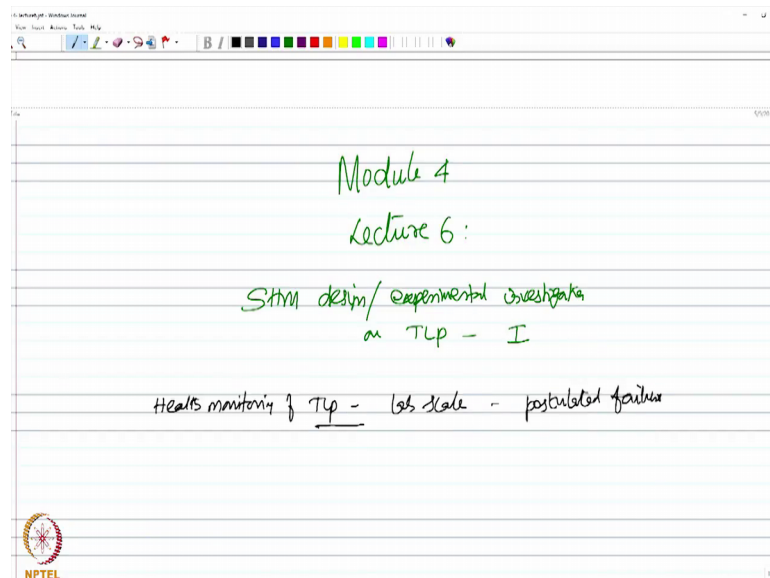 View Insert Actions Tools Help
B I
Module 4
Lecture 6:
SHM design/ experimental investigation
on TLP - I
Health monitoring of TLP - lab scale - postulated failure
NPTEL